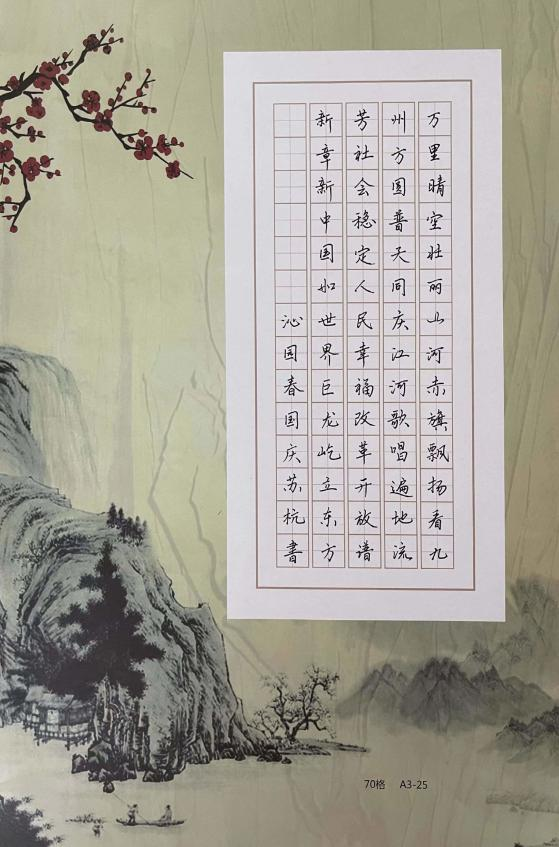 万里晴空壮丽山河赤旗飘扬看九
州方圆普天同庆江河歌唱遍地流
芳社会稳定人民幸福改革开放谱
新章新中国如世界巨龙屹立东方
沁园春国庆苏杭書
70格 A3-25